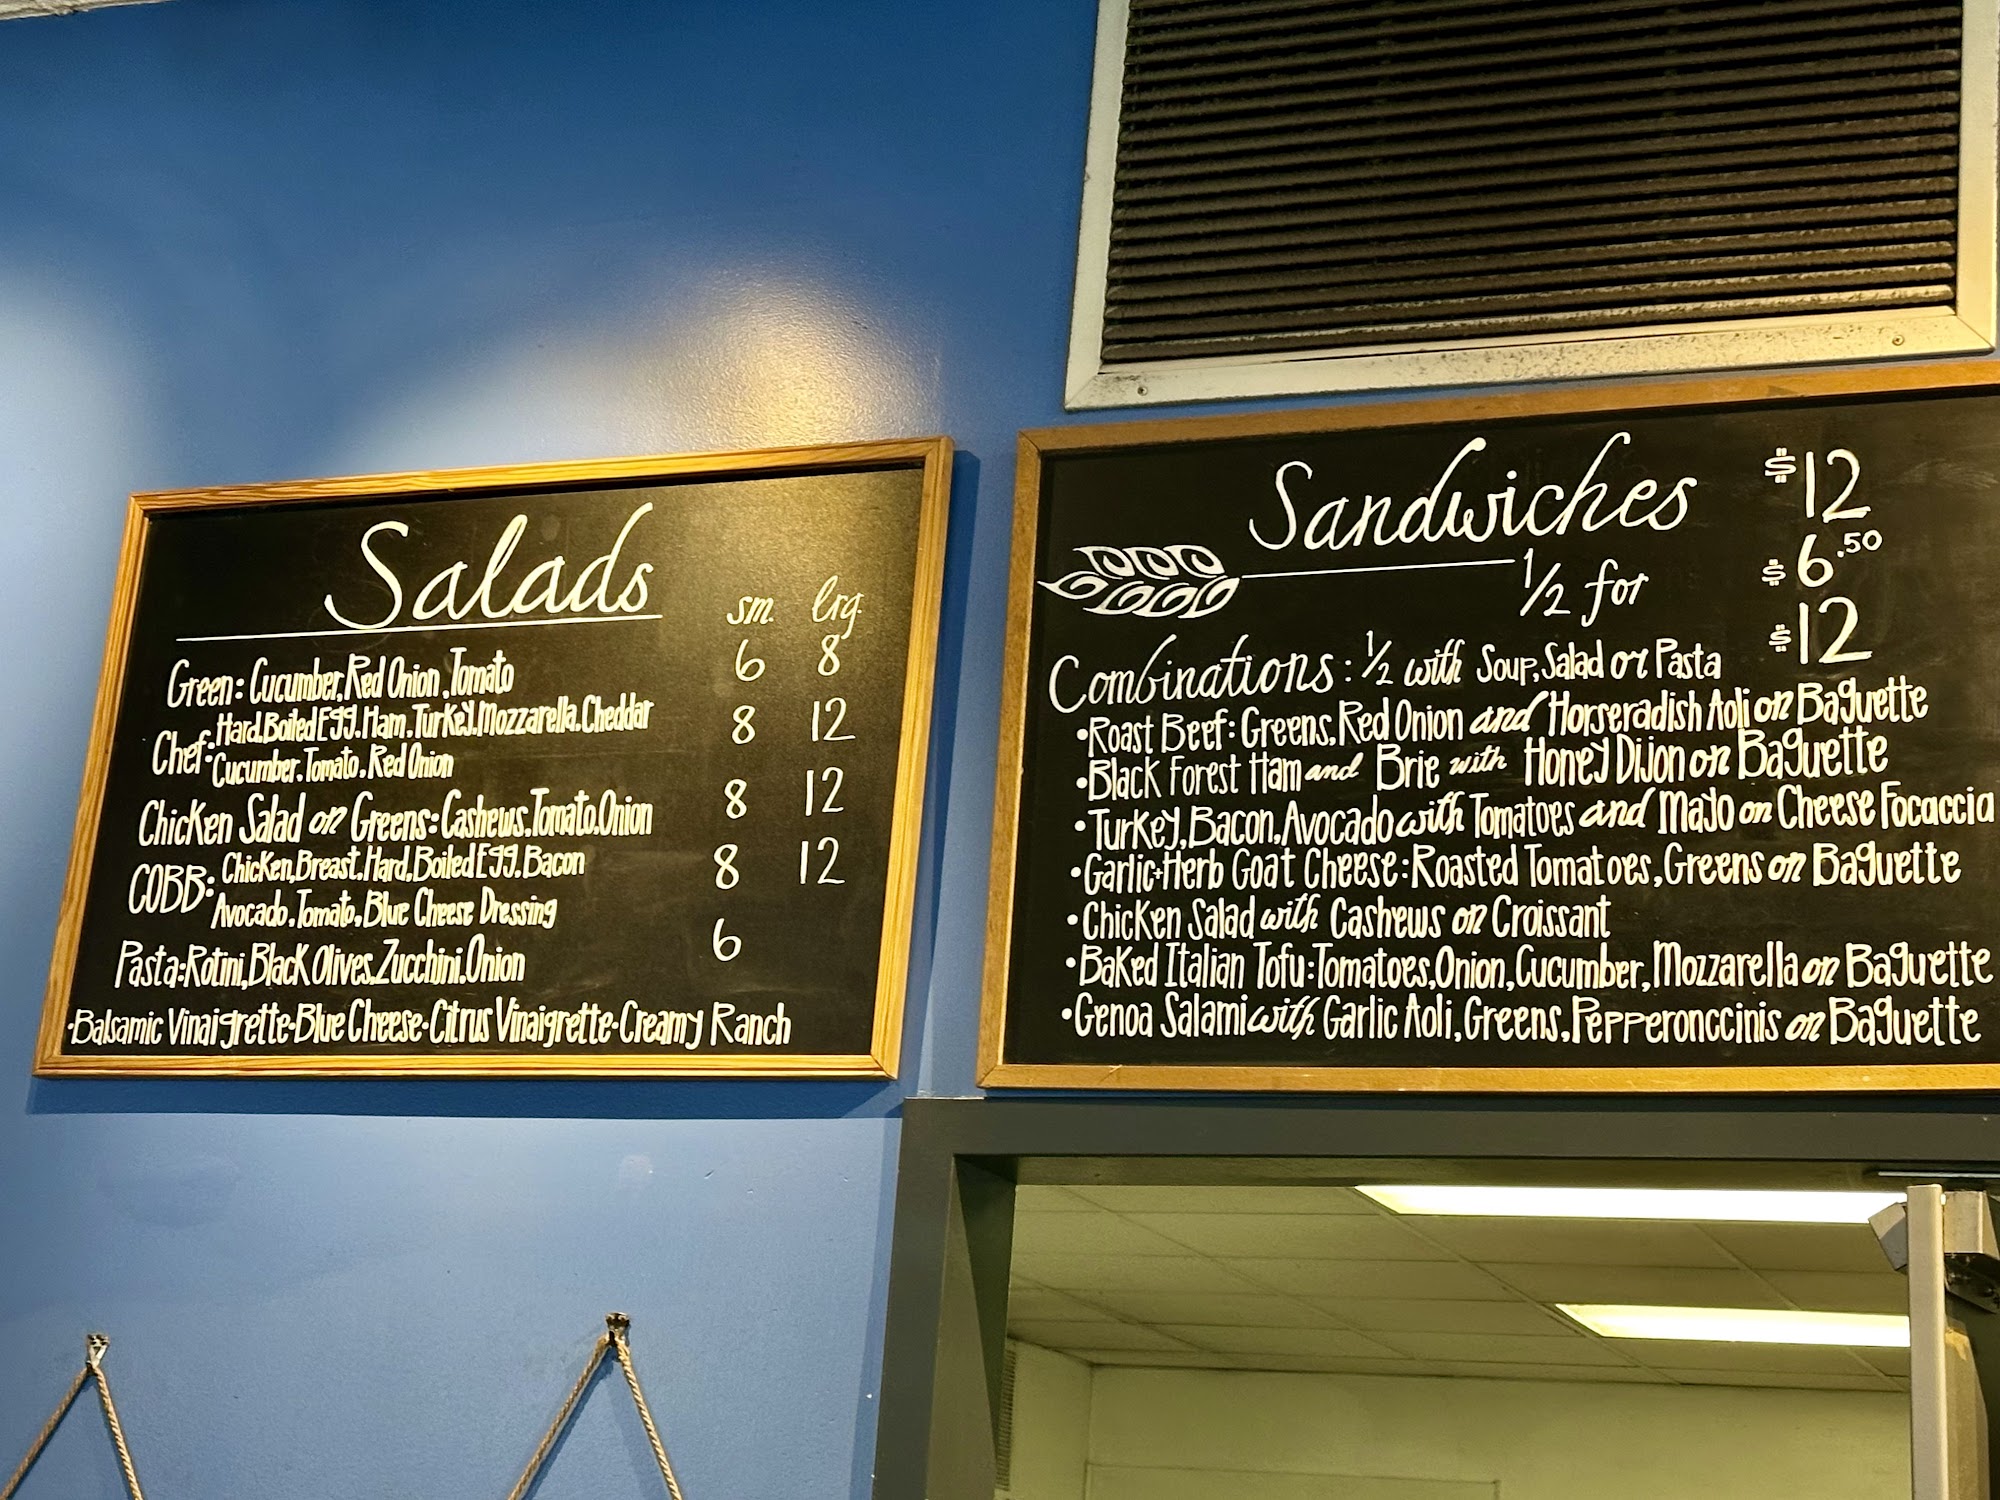 Salads
sm. lrg.
Green: Cucumber, Red Onion, Tomato 6 8
Chef: Hard Boiled Egg, Ham, Turkey, Mozzarella, Cheddar 8 12
Cucumber, Tomato, Red Onion
Chicken Salad on Greens: Cashews, Tomato, Onion 8 12
COBB: Chicken Breast, Hard Boiled Egg, Bacon 8 12
Avocado, Tomato, Blue Cheese Dressing
Pasta: Rotini, Black Olives, Zucchini, Onion 6
·Balsamic Vinaigrette·Blue Cheese·Citrus Vinaigrette·Creamy Ranch
Sandwiches $12
1/2 for $6.50
Combinations: 1/2 with Soup, Salad or Pasta $12
•Roast Beef: Greens, Red Onion and Horseradish Aoli on Baguette
•Black Forest Ham and Brie with Honey Dijon on Baguette
•Turkey, Bacon, Avocado with Tomatoes and Mayo on Cheese Focaccia
•Garlic+Herb Goat Cheese: Roasted Tomatoes, Greens on Baguette
•Chicken Salad with Cashews on Croissant
•Baked Italian Tofu: Tomatoes, Onion, Cucumber, Mozzarella on Baguette
•Genoa Salami with Garlic Aoli, Greens, Pepperonccinis on Baguette